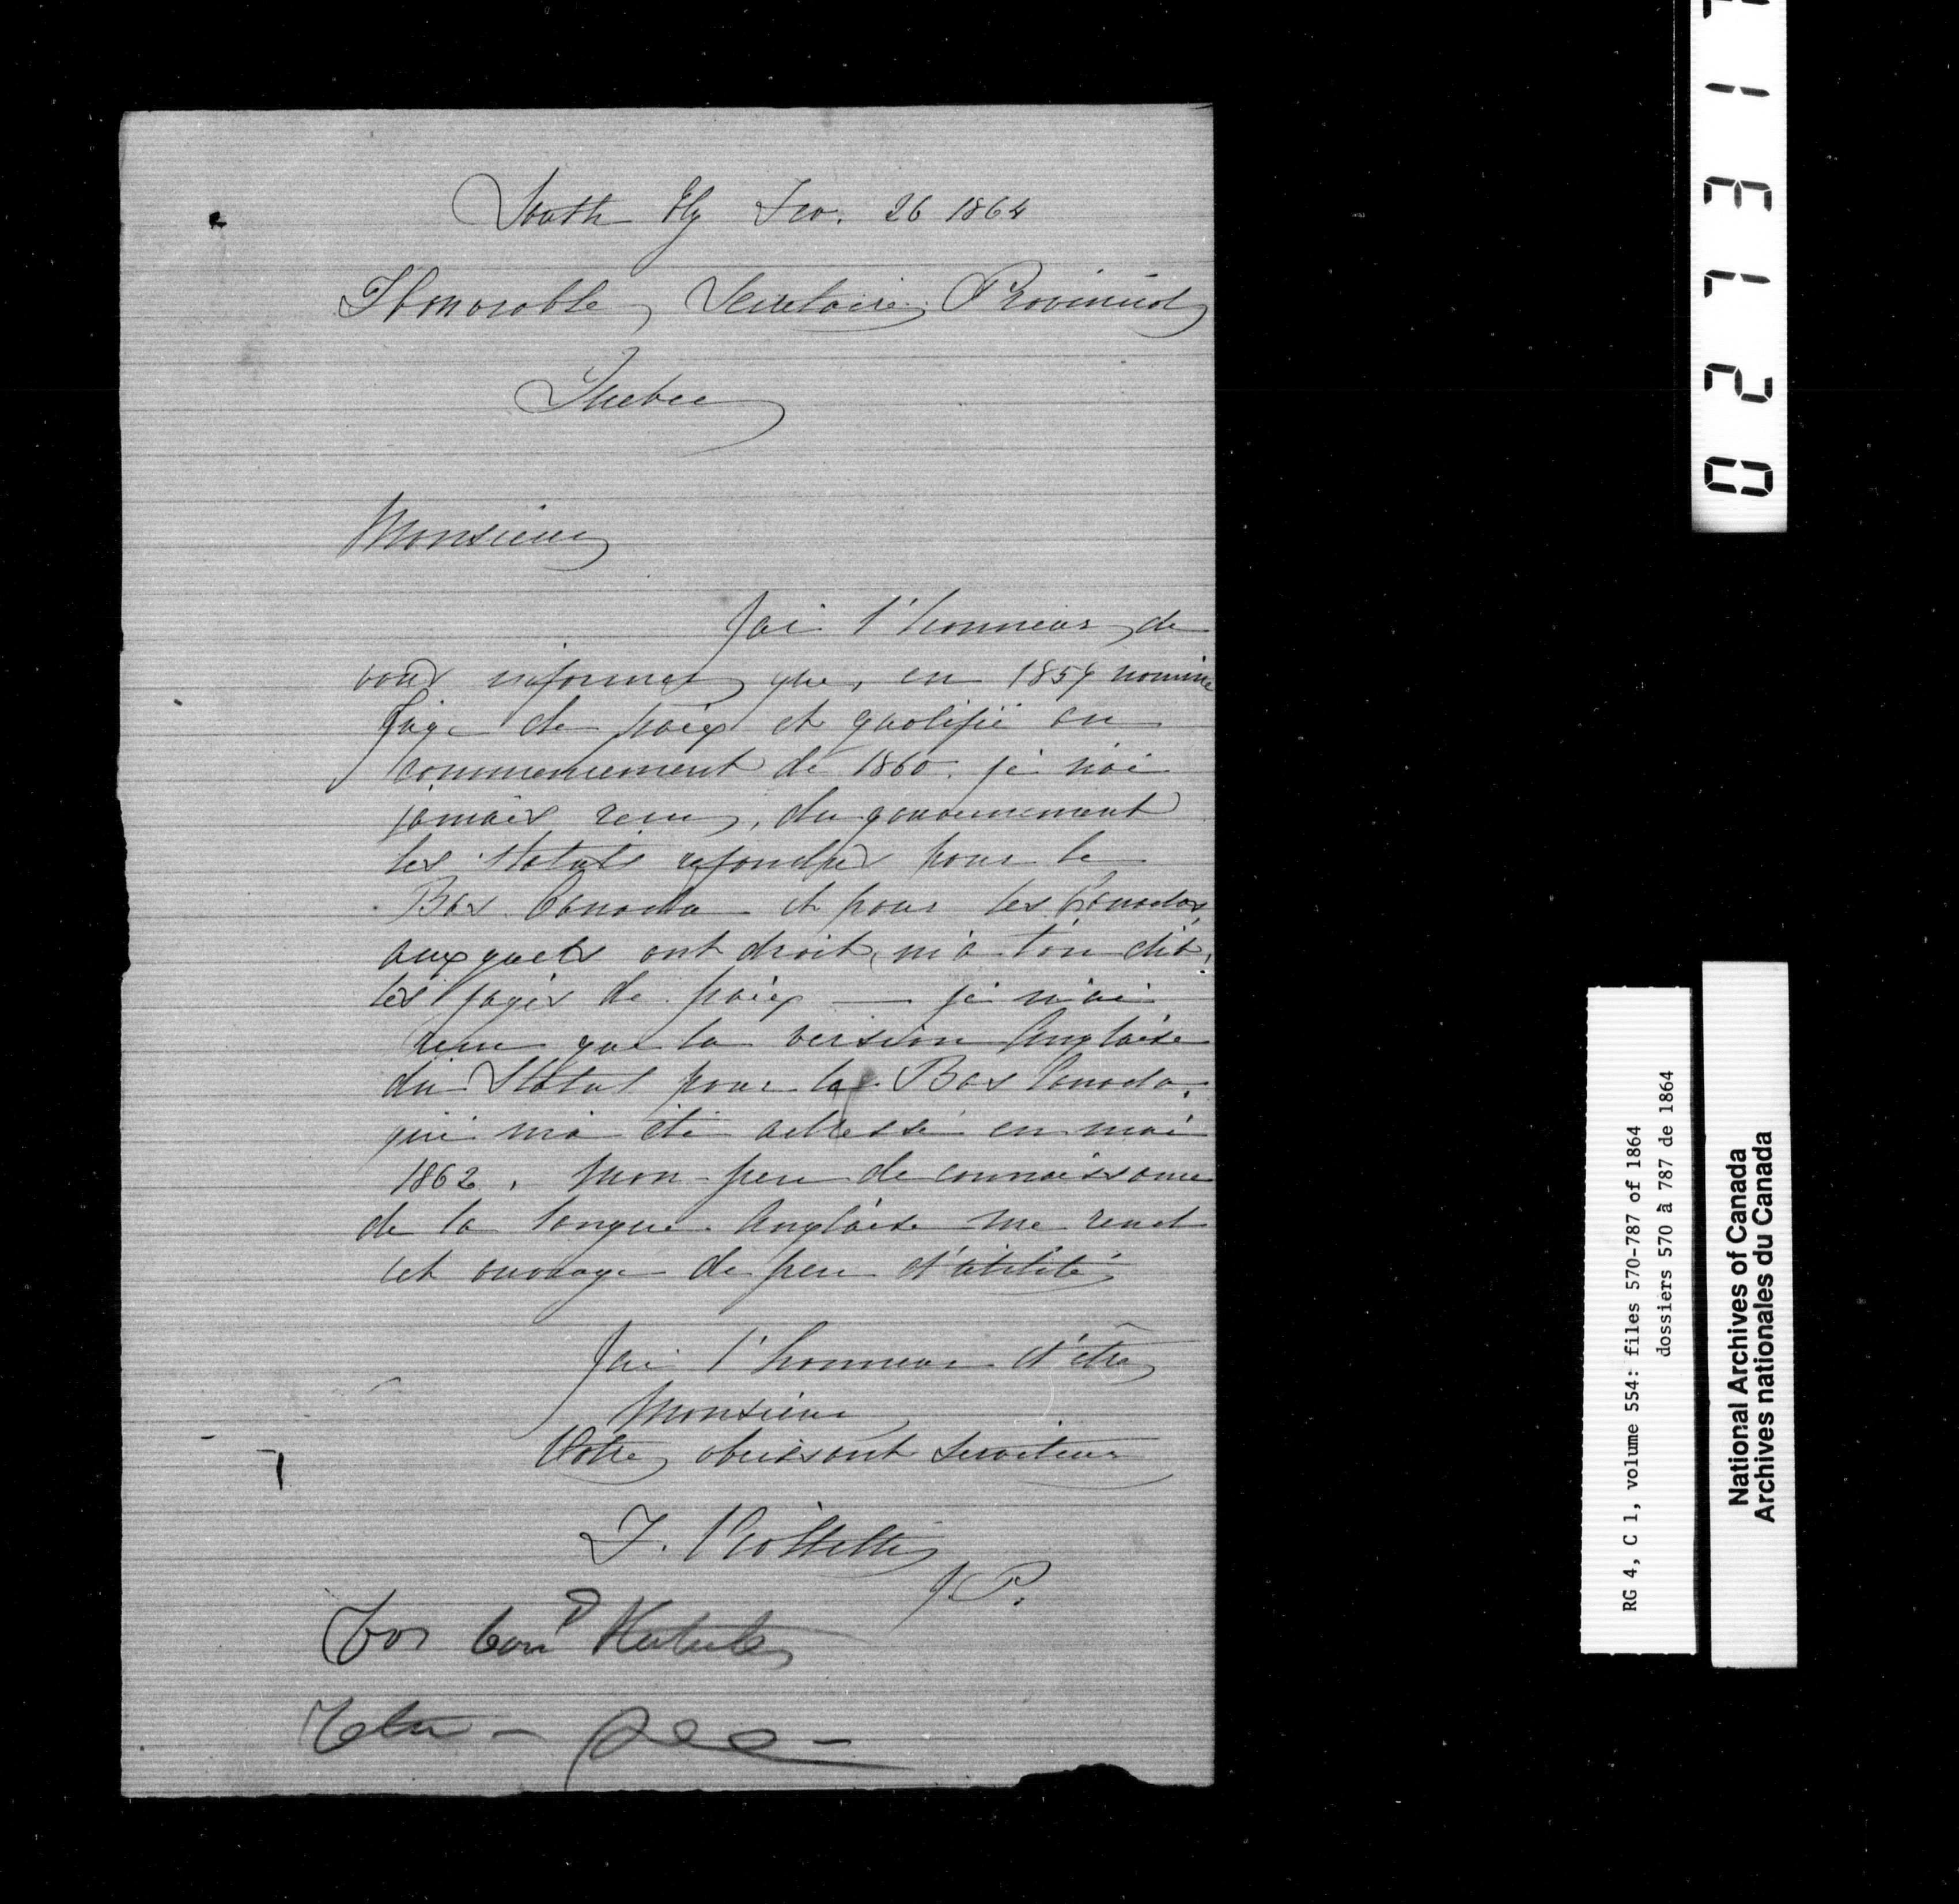 South Ely Fev. 26 1864
Honorable Secretaire Provincial
Quebec
Monsieur
Jai l'honneur de
vous informer que, en 1859 nommé
Juge de paix et qualifié au
commencement de 1860. je n'ai
jamais recu, du gouvernement
les Statuts refondus pour le
Bas Canada et pour les Canadas,
auxquels ont droit, m'a t'on dit,
les juges de paix — je n'ai
recu que la version Anglaise
du Statut pour le Bas Canada,
qui m'a été adressé en mai
1862, mon peu de connaissance
de la langue Anglaise me rend
cet ouvrage de peu d'utilité
Jai l'honneur d'être
Monsieur
Votre obeissant Serviteur
J.P.
For Con^d Statutes
027317
RG 4, C 1, volume 554: files 570-787 of 1864
dossiers 570 à 787 de 1864
National Archives of Canada
Archives nationales du Canada